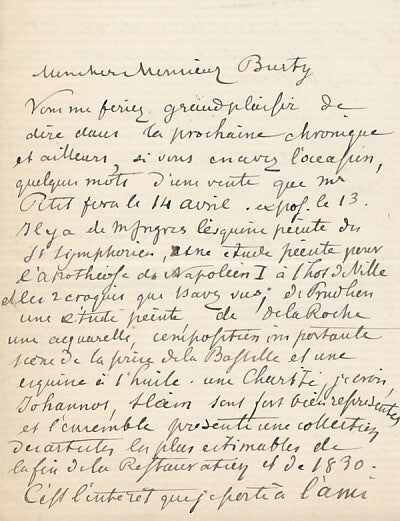 Mon cher Monsieur Burty
Vous me feriez grand plaisir de
dire dans la prochaine chronique
et ailleurs, si vous en avez l'occasion,
quelques mots d'une vente que Mr
Petit fera le 14 avril. expos. le 13.
Il y a de M Ingres l'esquisse peinte du
St Symphorien, une étude peinte pour
l'apothéose de Napoléon I à l'hos de Ville
et les 2 croquis que vs avez vus; de Prudhon
une étude peinte de de la Roche
une aquarelle, composition importante
scène de la prise de la Bastille et une
esquisse à l'huile. une Charité, je crois,
Johannot, sont fort bien représentés
et l'ensemble présente une collection
des artistes les plus estimables de
la fin de la Restauration et de 1830.
C'est l'intérêt que je porte à l'ami